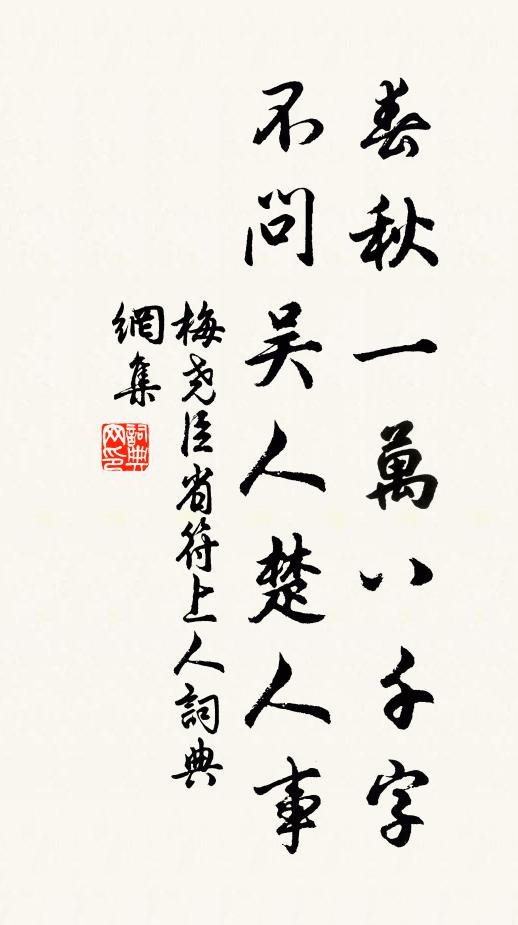 春秋一萬八千字
不問吴人楚人事
梅堯臣省符上人詞典
網集
詞典
网印